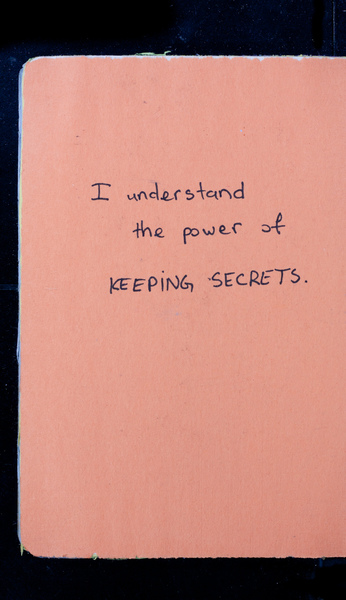 I understand
the power of
KEEPiNG SECRETS.